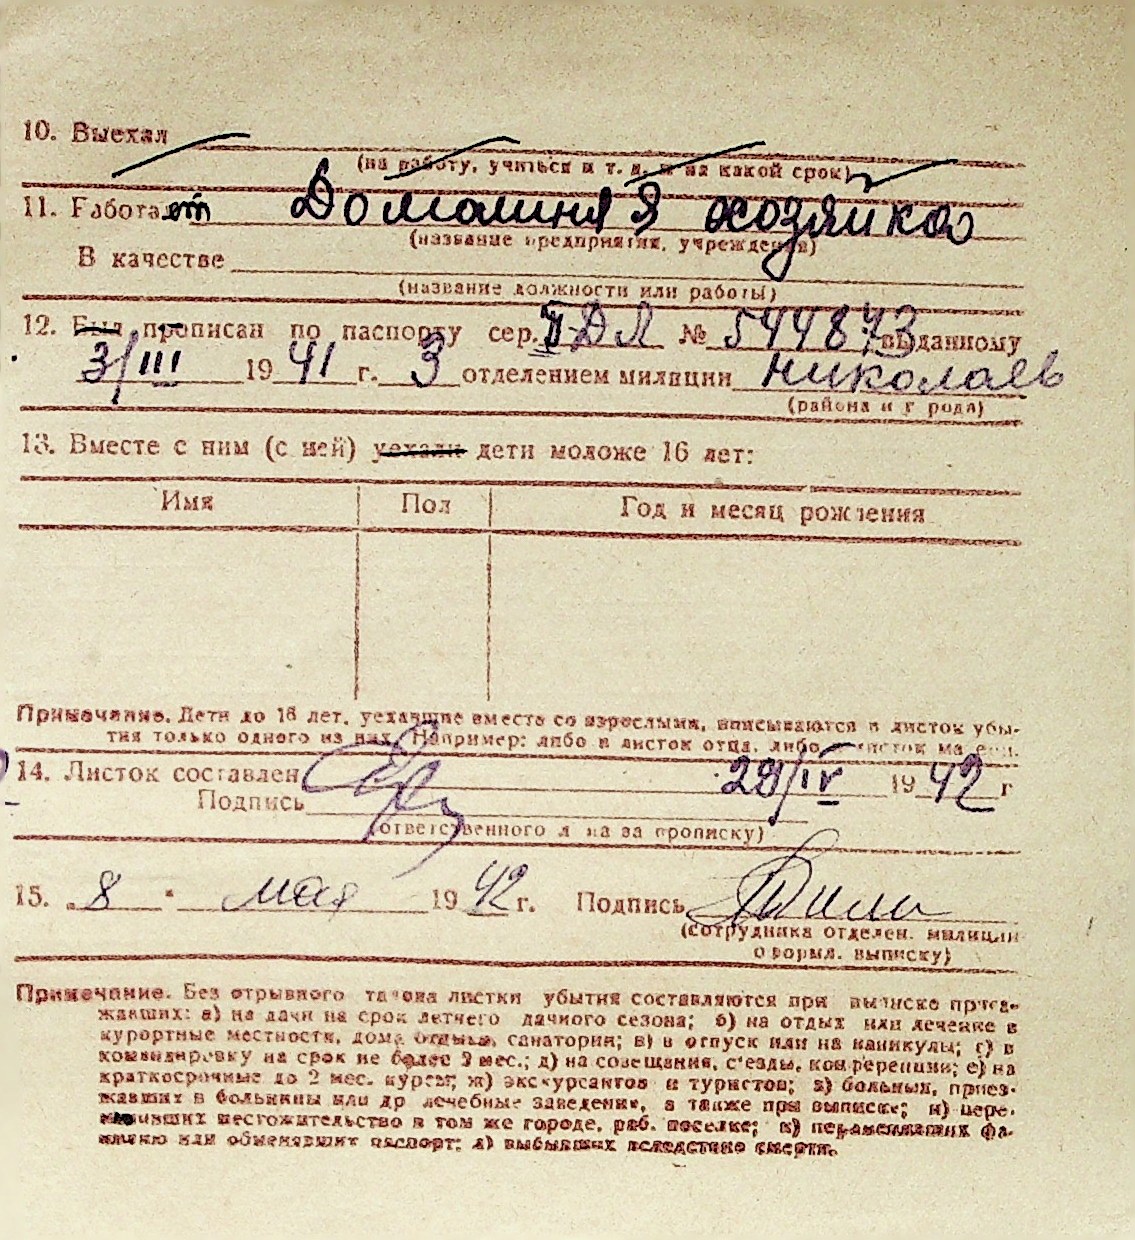 10. Выехал
(на работу, учиться и т. д. и на какой срок)
11. Работает Домашняя хозяйка
(название предприятия, учреждения)
В качестве
(название должности или работы)
12. Был прописан по паспорту сер. № 544873 выданному
3/III 1941 г. 3 отделением милиции Николаев
(района и города)
13. Вместе с ним (с ней) уехали дети моложе 16 лет:
Имя Пол Год и месяц рождения
Примечание. Дети до 16 лет, уехавшие вместе со взрослыми, вписываются в листок убы-
тия только одного из них. Например: либо в листок отца, либо в листок матери.
14. Листок составлен 29/IV 1942 г
Подпись
(ответственного лица за прописку)
15. „8" мая 1942 г. Подпись
(сотрудника отделен. милиции
оформл. выписку)
Примечание. Без отрывного талона листки убытия составляются при выписке приез-
жавших: а) на дачи на срок летнего дачного сезона; б) на отдых или лечение в
курортные местности, дома отдыха, санатории; в) в отпуск или на каникулы; г) в
командировку на срок не более 2 мес.; д) на совещания, съезды, конференции; е) на
краткосрочные до 2 мес. курсы; ж) экскурсантов и туристов; з) больных, приез-
жавших в больницы или др лечебные заведения, а также при выписке; и) пере-
менивших местожительство в том же городе, раб. поселке; к) переменивших фа-
милию или обменявших паспорт; л) выбывших вследствие смерти.